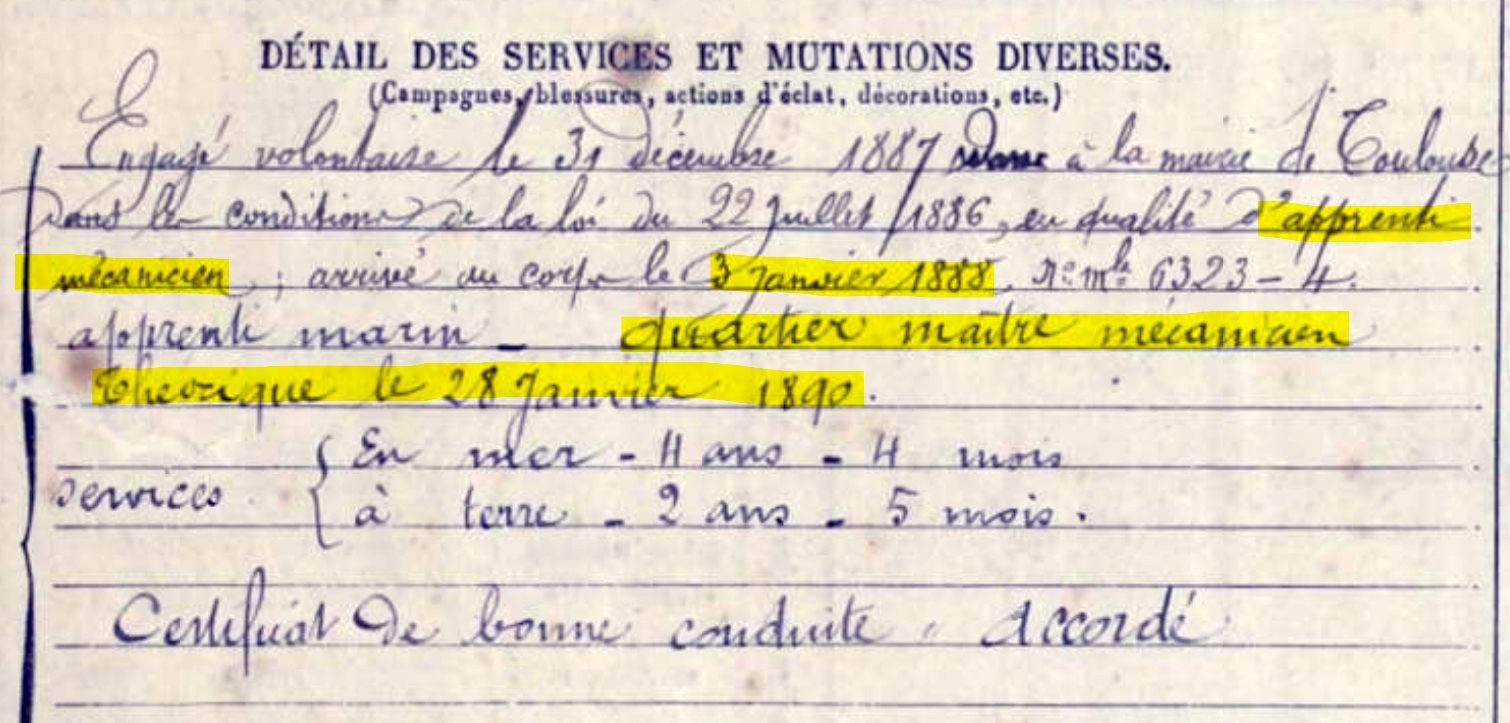 DÉTAIL DES SERVICES ET MUTATIONS DIVERSES.
(Campagnes, blessures, actions d'éclat, décorations, etc.)
Engagé volontaire le 31 décembre 1887 à la mairie de Toulouse
dans les conditions de la loi du 22 Juillet 1886, en qualité d'apprenti
mécanicien ; arrivé au corps le 3 Janvier 1888. No mle 6323 - 4.
apprenti marin - quartier maître mécanicien
théorique le 28 Janvier 1890.
services { En mer - 4 ans - 4 mois
à terre - 2 ans - 5 mois.
Certificat de bonne conduite " Accordé